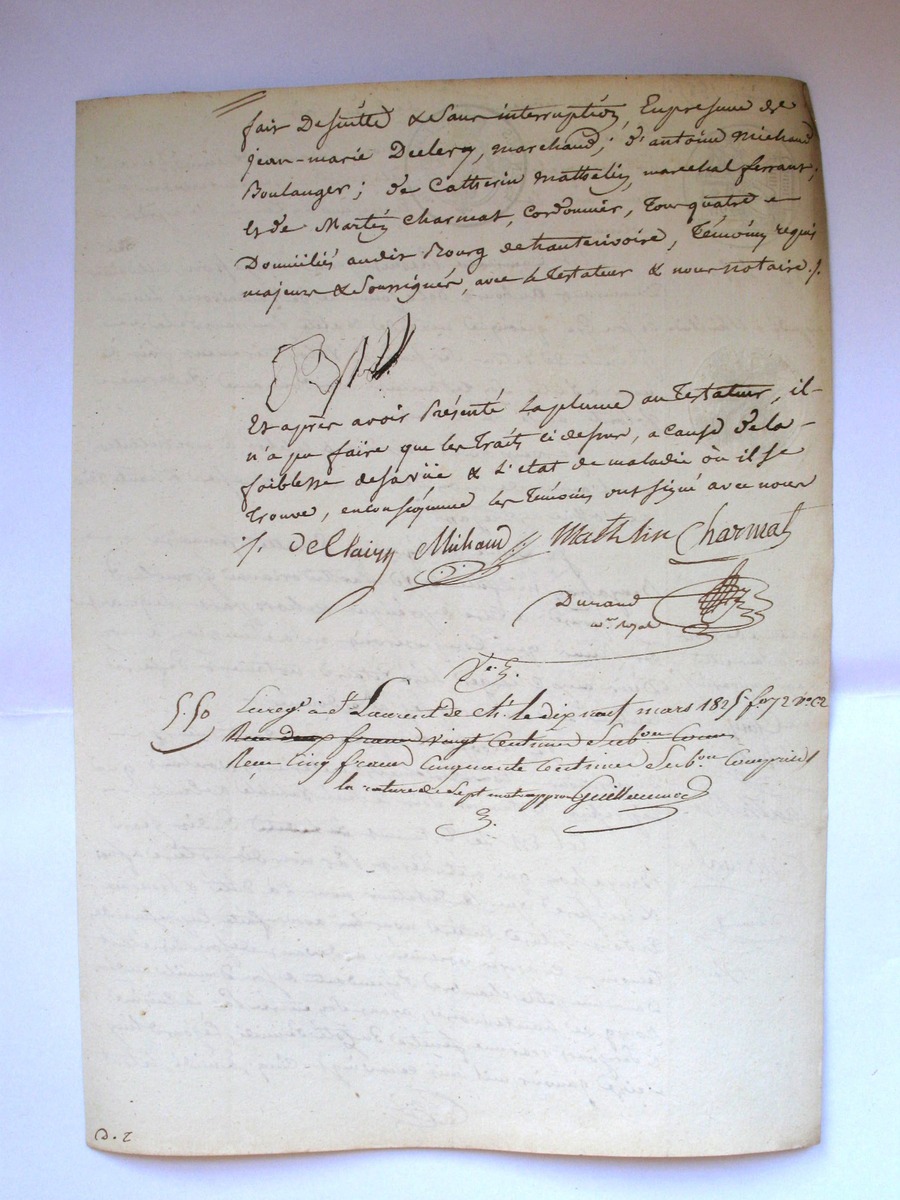 fait De suitte & sans interruption, En presence de
jean-marie Declery, marchand; d'antoine Michaud
Boulanger; de Catherin Mathelin, marechal ferrant;
Et de Martin Charmat, Cordonnier, Tous quatre
Domiciliés audit Bourg de hauterivoire, Témoins requis
majeurs & Soussignés, avec le Testateur & nous notaire ./.
Et après avoir Présenté la plume au Testateur, il
n'a pu faire que les Traits ci dessus, a cause de la
faiblesse de sa vüe & l'état de maladie où il se
Trouve, en conséquence les Témoins ont signé avec nous
./. Declairy Michaud Mathelin Charmat
Durand
nre. royal
5.50 Enregé. à St. Laurent de Ch. le dix neuf mars 1825 fo 72 vo C2
Reçu deux francs vingt Centimes Subon. Comp
Reçu Cinq francs Cinquante Centimes Subon. Comprise
la rature de sept mots appro Guillaumot
D. T